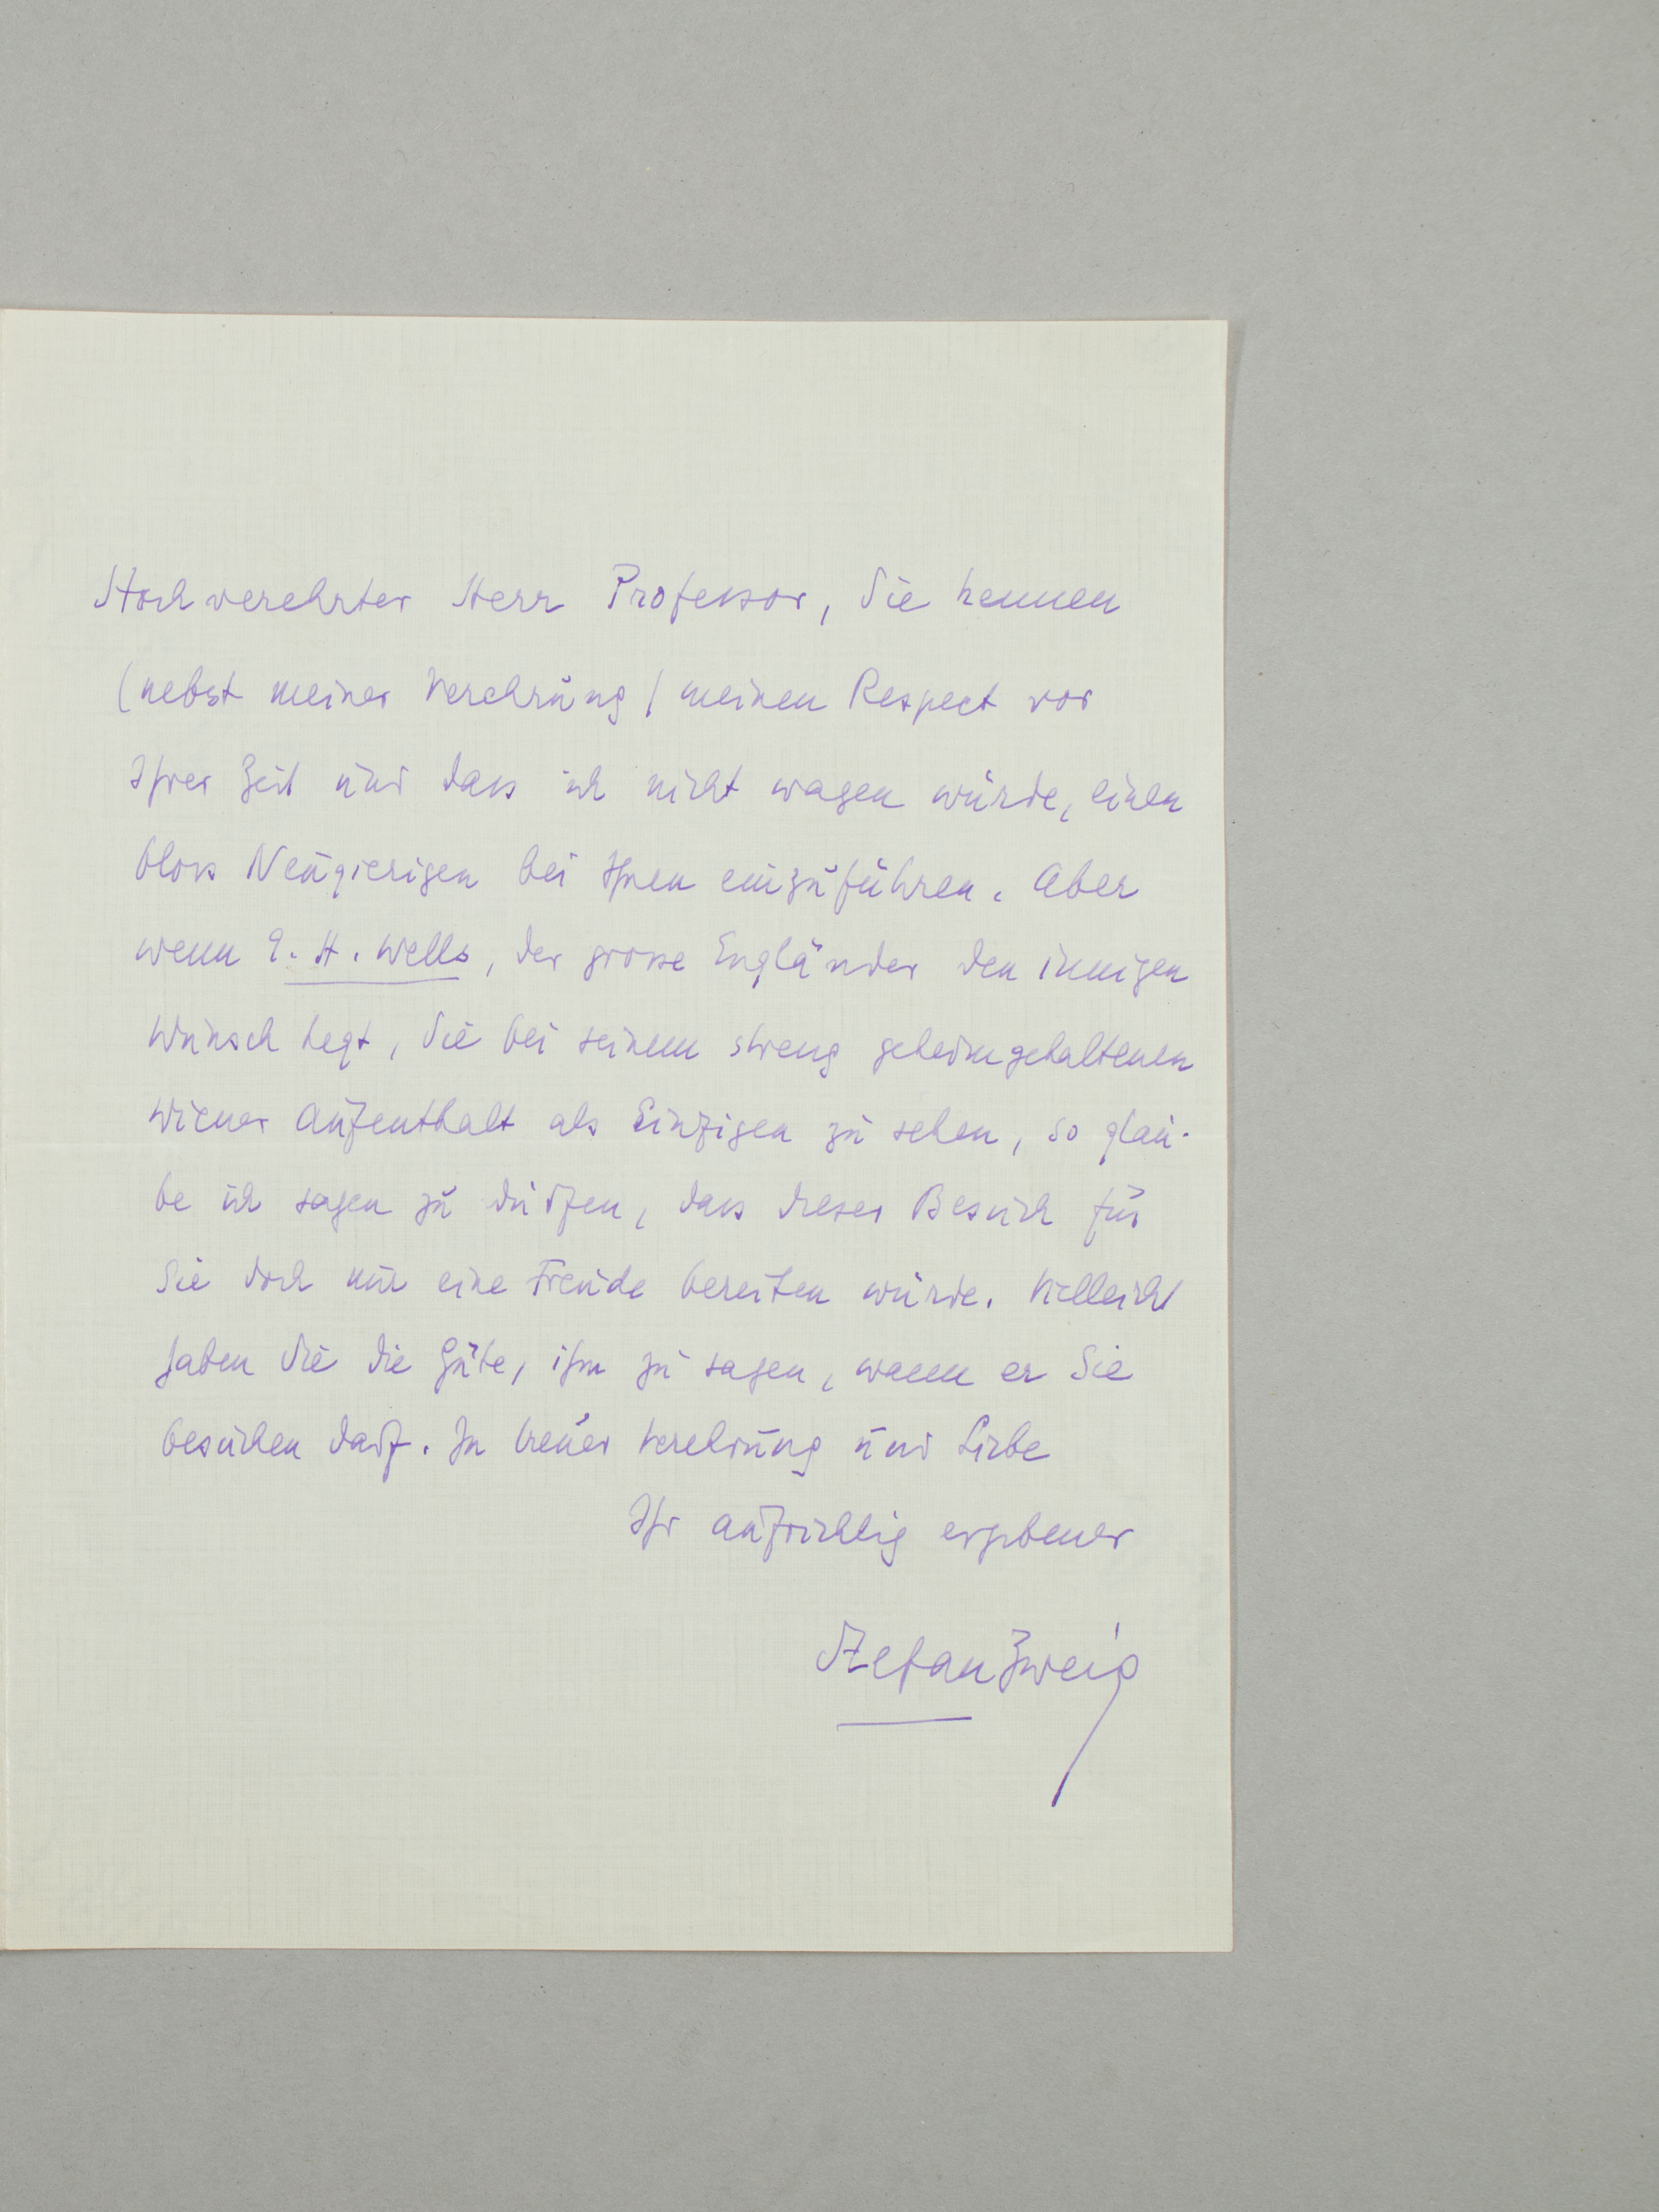 Hochverehrter Herr Professor, Sie kennen
(nebst meiner Verehrung) meinen Respect vor
Ihrer Zeit und dass ich nicht wagen würde, einen
bloss Neugierigen bei Ihnen einzuführen. Aber
wenn G. H. Wells, der grosse Engländer den innigen
Wunsch hegt, Sie bei seinem streng geheimgehaltenen
Wiener Aufenthalt als Einzigen zu sehen, so glau-
be ich sagen zu dürfen, dass dieser Besuch für
Sie doch nur eine Freude bereiten würde. Vielleicht
haben Sie die Güte, ihm zu sagen, wann er Sie
besuchen darf. In treuer Verehrung und Liebe
Ihr aufrichtig ergebener
Stefan Zweig